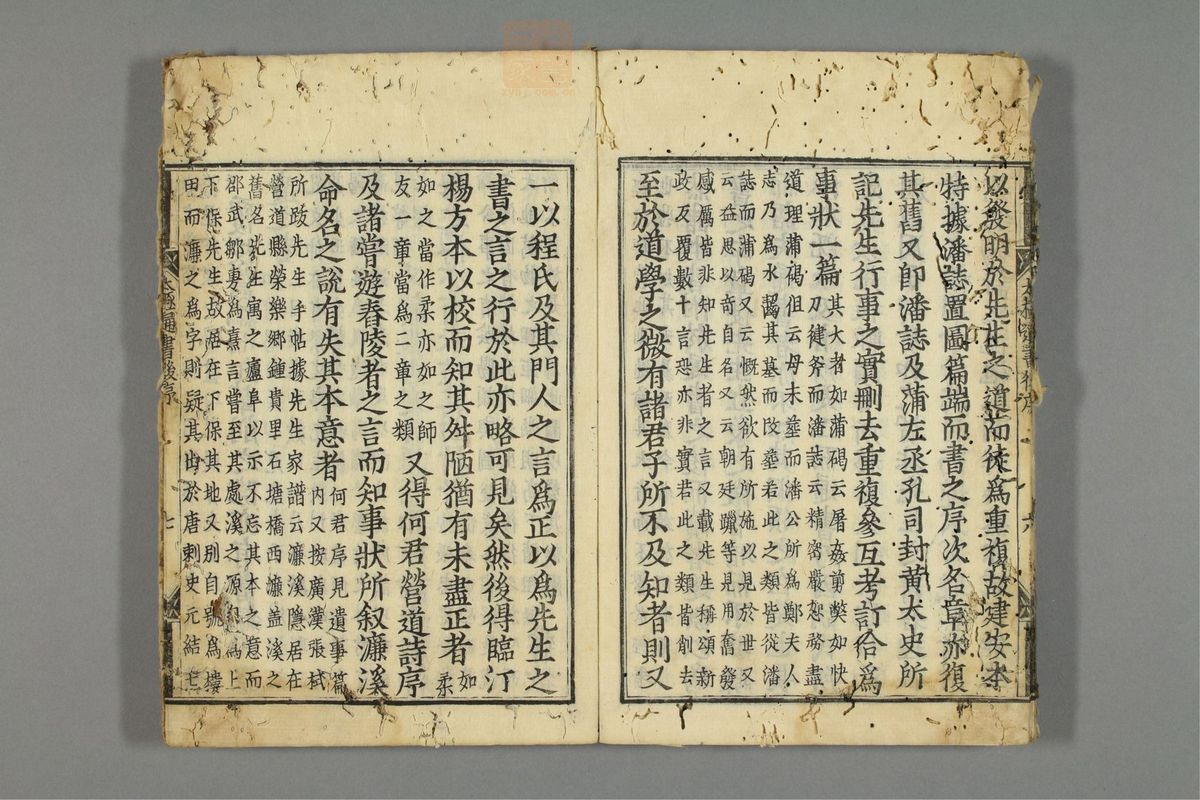 以發明於先生之道而徒爲重複故建安本
特據潘誌置圖篇端而書之序次名章亦復
其舊又卽潘誌及蒲左丞孔司封黃太史所
記先生行事之實刪去重複參互考訂合爲
事狀一篇
其大者如蒲碣云屠姦剪弊如快
刀健斧而潘誌云精密嚴恕務盡
道理蒲碣但云母未葬而潘公所爲鄭夫人
志乃爲水齧其墓而改葬若此之類皆從潘
誌而蒲碣又云慨然欲有所施以見於世又
云益思以奇自名又云朝廷躐等見用奮發
感厲皆非知先生者之言又載先生稱頌新
政反覆數十言恐亦非實若此之類皆削去
至於道學之微有諸君子所不及知者則又
太極通書後序
六
一以程氏及其門人之言爲正以爲先生之
書之言之行於此亦略可見矣然後得臨汀
楊方本以校而知其舛陋猶有未盡正者
如柔
如之當作柔亦如之師
友一章當爲二章之類
又得何君營道詩序
及諸嘗遊舂陵者之言而知事狀所叙濂溪
命名之說有失其本意者
何君序見遺事篇
內又按廣漢張栻
所跋先生手帖據先生家譜云濂溪隱居在
營道縣榮樂鄉鍾貴里石塘橋西濂蓋溪之
舊名先生寓之廬阜以示不忘其本之意而
邵武鄒旉爲熹言嘗至其處溪之源爲上
下保先生故居在下保其地又別自號爲樓
田而濂之爲字則疑其出於唐刺史元結
太極通書後序
七